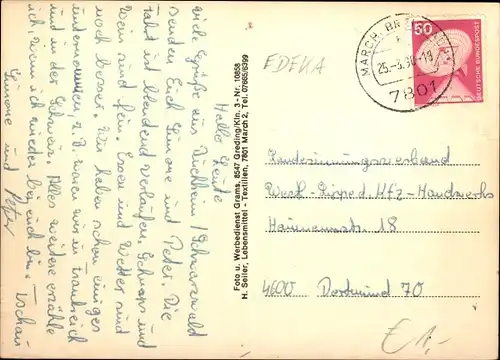 Hallo Leute
viele Grüße aus Buchheim / Schwarzwald
senden Euch Simone und Peter. Die
Fahrt ist blendend verlaufen. Schnaps und
Wein sind fein. Essen und Wetter sind
noch besser. Wir haben schon einiges
unternommen, z.B. waren wir in Frankreich
und in der Schweiz. Alles weitere erzähle
ich, wenn ich wieder bei euch bin. Tschau
Simone und Peter
Foto u. Werbedienst Grams, 8547 Greding/Ktn. 3 - Nr. 10858
H. Seiler, Lebensmittel - Textilien, 7801 March 2, Tel. 07665/6399
EDEKA
MARCH, BR
25.-3.80-19
7801
50
DEUTSCHE BUNDESPOST
Landesinnungsverband
West-Lipped. Kfz-Handwerks
18
4600 Dortmund 70
€ 1,-